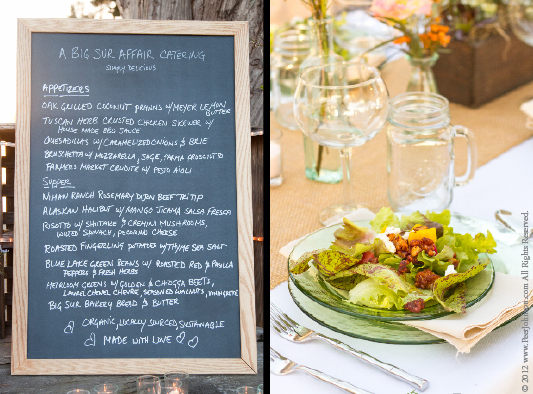 A BIG SUR AFFAIR CATERING
SIMPLY DELICIOUS
APPETIZERS
OAK GRILLED COCONUT PRAWNS W/MEYER LEMON
BUTTER
TUSCAN HERB CRUSTED CHICKEN SKEWER W/
HOUSE MADE BBQ SAUCE
QUESADILLAS W/CARAMELIZED ONIONS & BRIE
BRUSCHETTA W/ MOZZARELLA, SAGE, PARMA PROSCIUTTO
FARMERS MARKET CRUDITE W/ PESTO AIOLI
SUPPER
NIMAN RANCH ROSEMARY DIJON BEEF TRI TIP
ALASKAN HALIBUT W/ MANGO JICAMA SALSA FRESCA
RISOTTO W/ SHIITAKE & CREMINI MUSHROOMS,
WILTED SPINACH, PECORINO CHEESE
ROASTED FINGERLING POTATOES W/THYME SEA SALT
BLUE LAKE GREEN BEANS W/ ROASTED RED & PASILLA
PEPPERS & FRESH HERBS
HEIRLOOM GREENS W/ GOLDEN & CHIOGGA BEETS,
LAUREL CHENEL CHEVRE, SEASONED WALNUTS, VINAIGRETTE
BIG SUR BAKERY BREAD & BUTTER
ORGANIC, LOCALLY SOURCED, SUSTAINABLE
MADE WITH LOVE
© 2012 www.PeerJohnson.com All Rights Reserved.